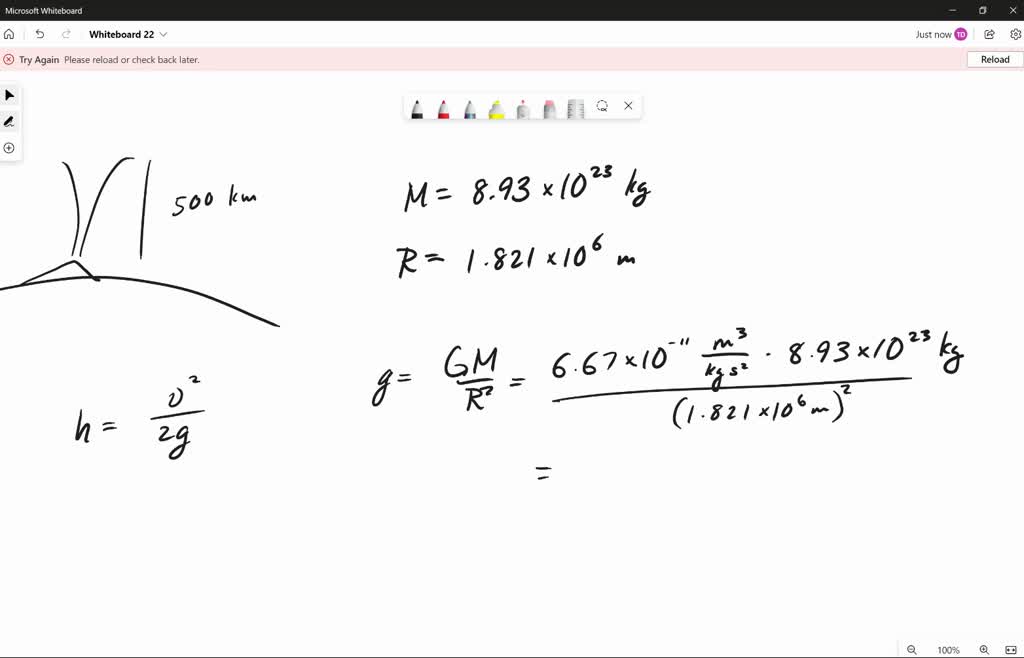 Microsoft Whiteboard
Whiteboard 22
Just now TD
Try Again Please reload or check back later.
Reload
500 km
M = 8.93 × 10²³ kg
R = 1.821 × 10⁶ m
g = GM/R² = 6.67 × 10⁻¹¹ m³/kg s² · 8.93 × 10²³ kg / (1.821 × 10⁶ m)²
h = υ²/2g
=
100%